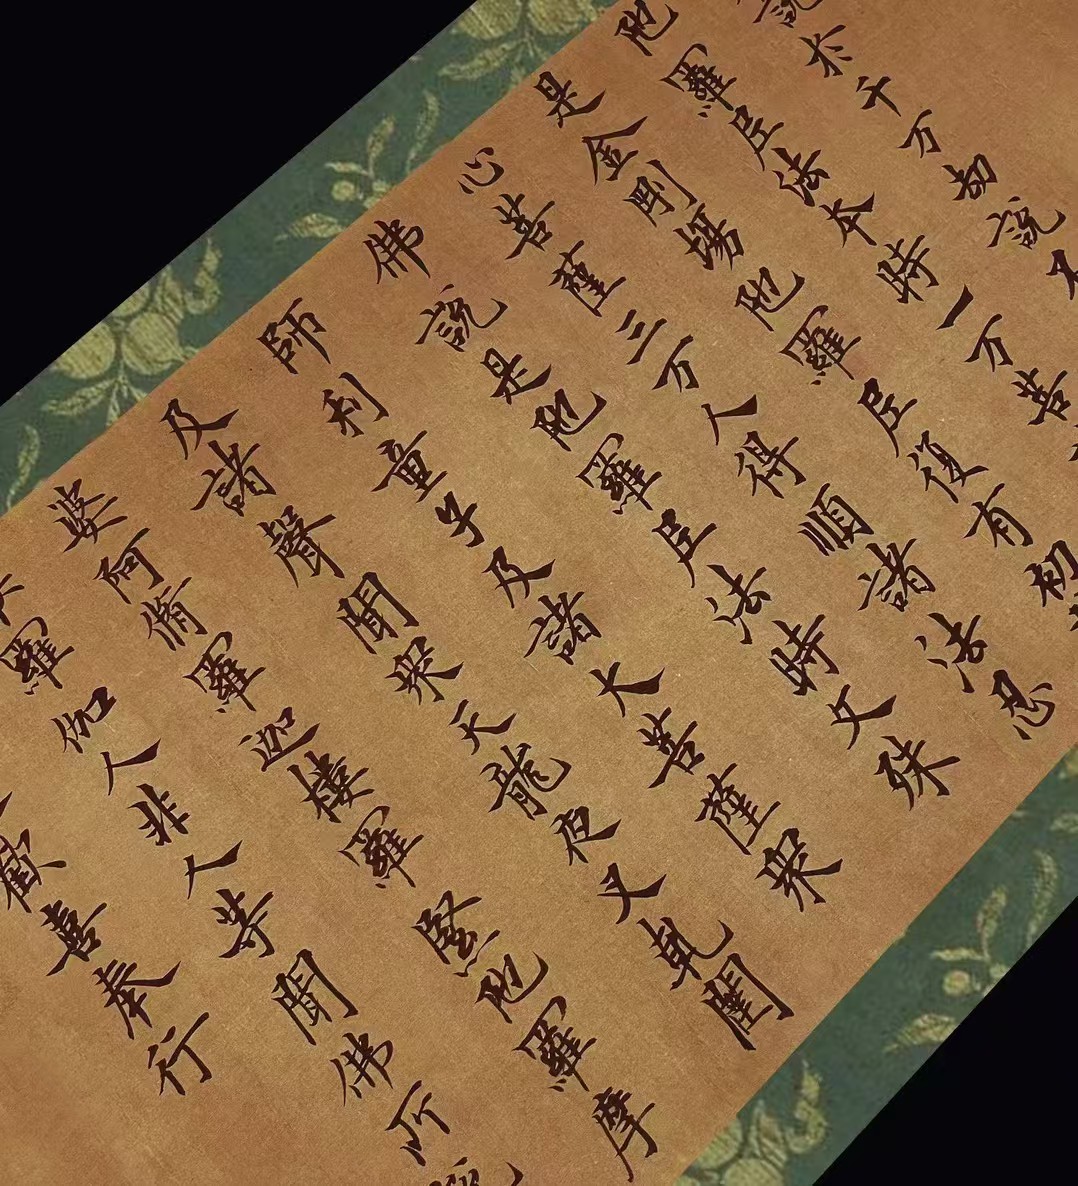 說於千万劫說不
陁羅尼法本時一万菩
是金剛場陁羅尼復有初
心菩薩三万人得順諸法忍
佛說是陁羅尼法時文殊
師利童子及諸大菩薩衆
及諸聲聞衆天龍夜叉乹闥
婆阿脩羅迦樓羅緊陁羅摩
羅伽人非人等聞佛所說
歡喜奉行